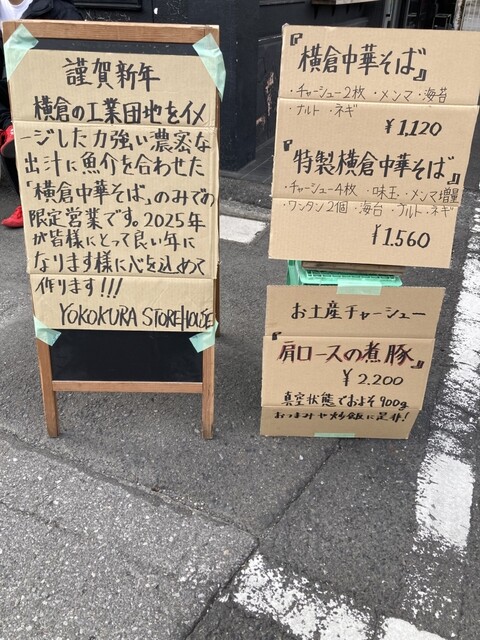 謹賀新年
横倉の工業団地をイメ
ージした力強い濃密な
出汁に魚介を合わせた
「横倉中華そば」のみでの
限定営業です。2025年
が皆様にとって良い年に
なります様に心を込めて
作ります!!!
YOKOKURA STOREHOUSE
『横倉中華そば』
・チャーシュー2枚 ・メンマ ・海苔
・ナルト ・ネギ
¥1,120
『特製横倉中華そば』
・チャーシュー4枚 ・味玉 ・メンマ増量
・ワンタン2個 ・海苔 ・ナルト ・ネギ
¥1.560
お土産チャーシュー
『肩ロースの煮豚』
¥2.200
真空状態でおよそ900g
おつまみや炒飯に是非!